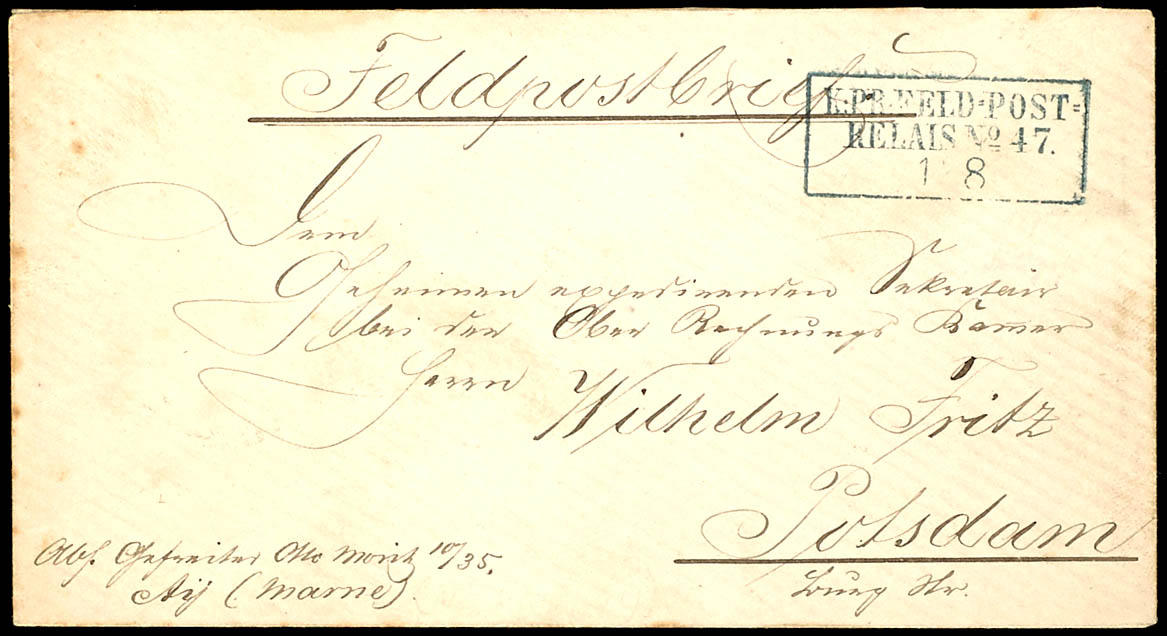 Feldpostbrief
K:PR:FELD=POST=
RELAIS No 47.
1 8
Dem
Geheimen expedirenden Sekretair
bei der Ober Rechnungs Kammer
Herrn
Wilhelm Fritz
Potsdam
Burg Str.
Abs. Gefreiter Otto Moritz 10/35.
Aÿ (Marne).